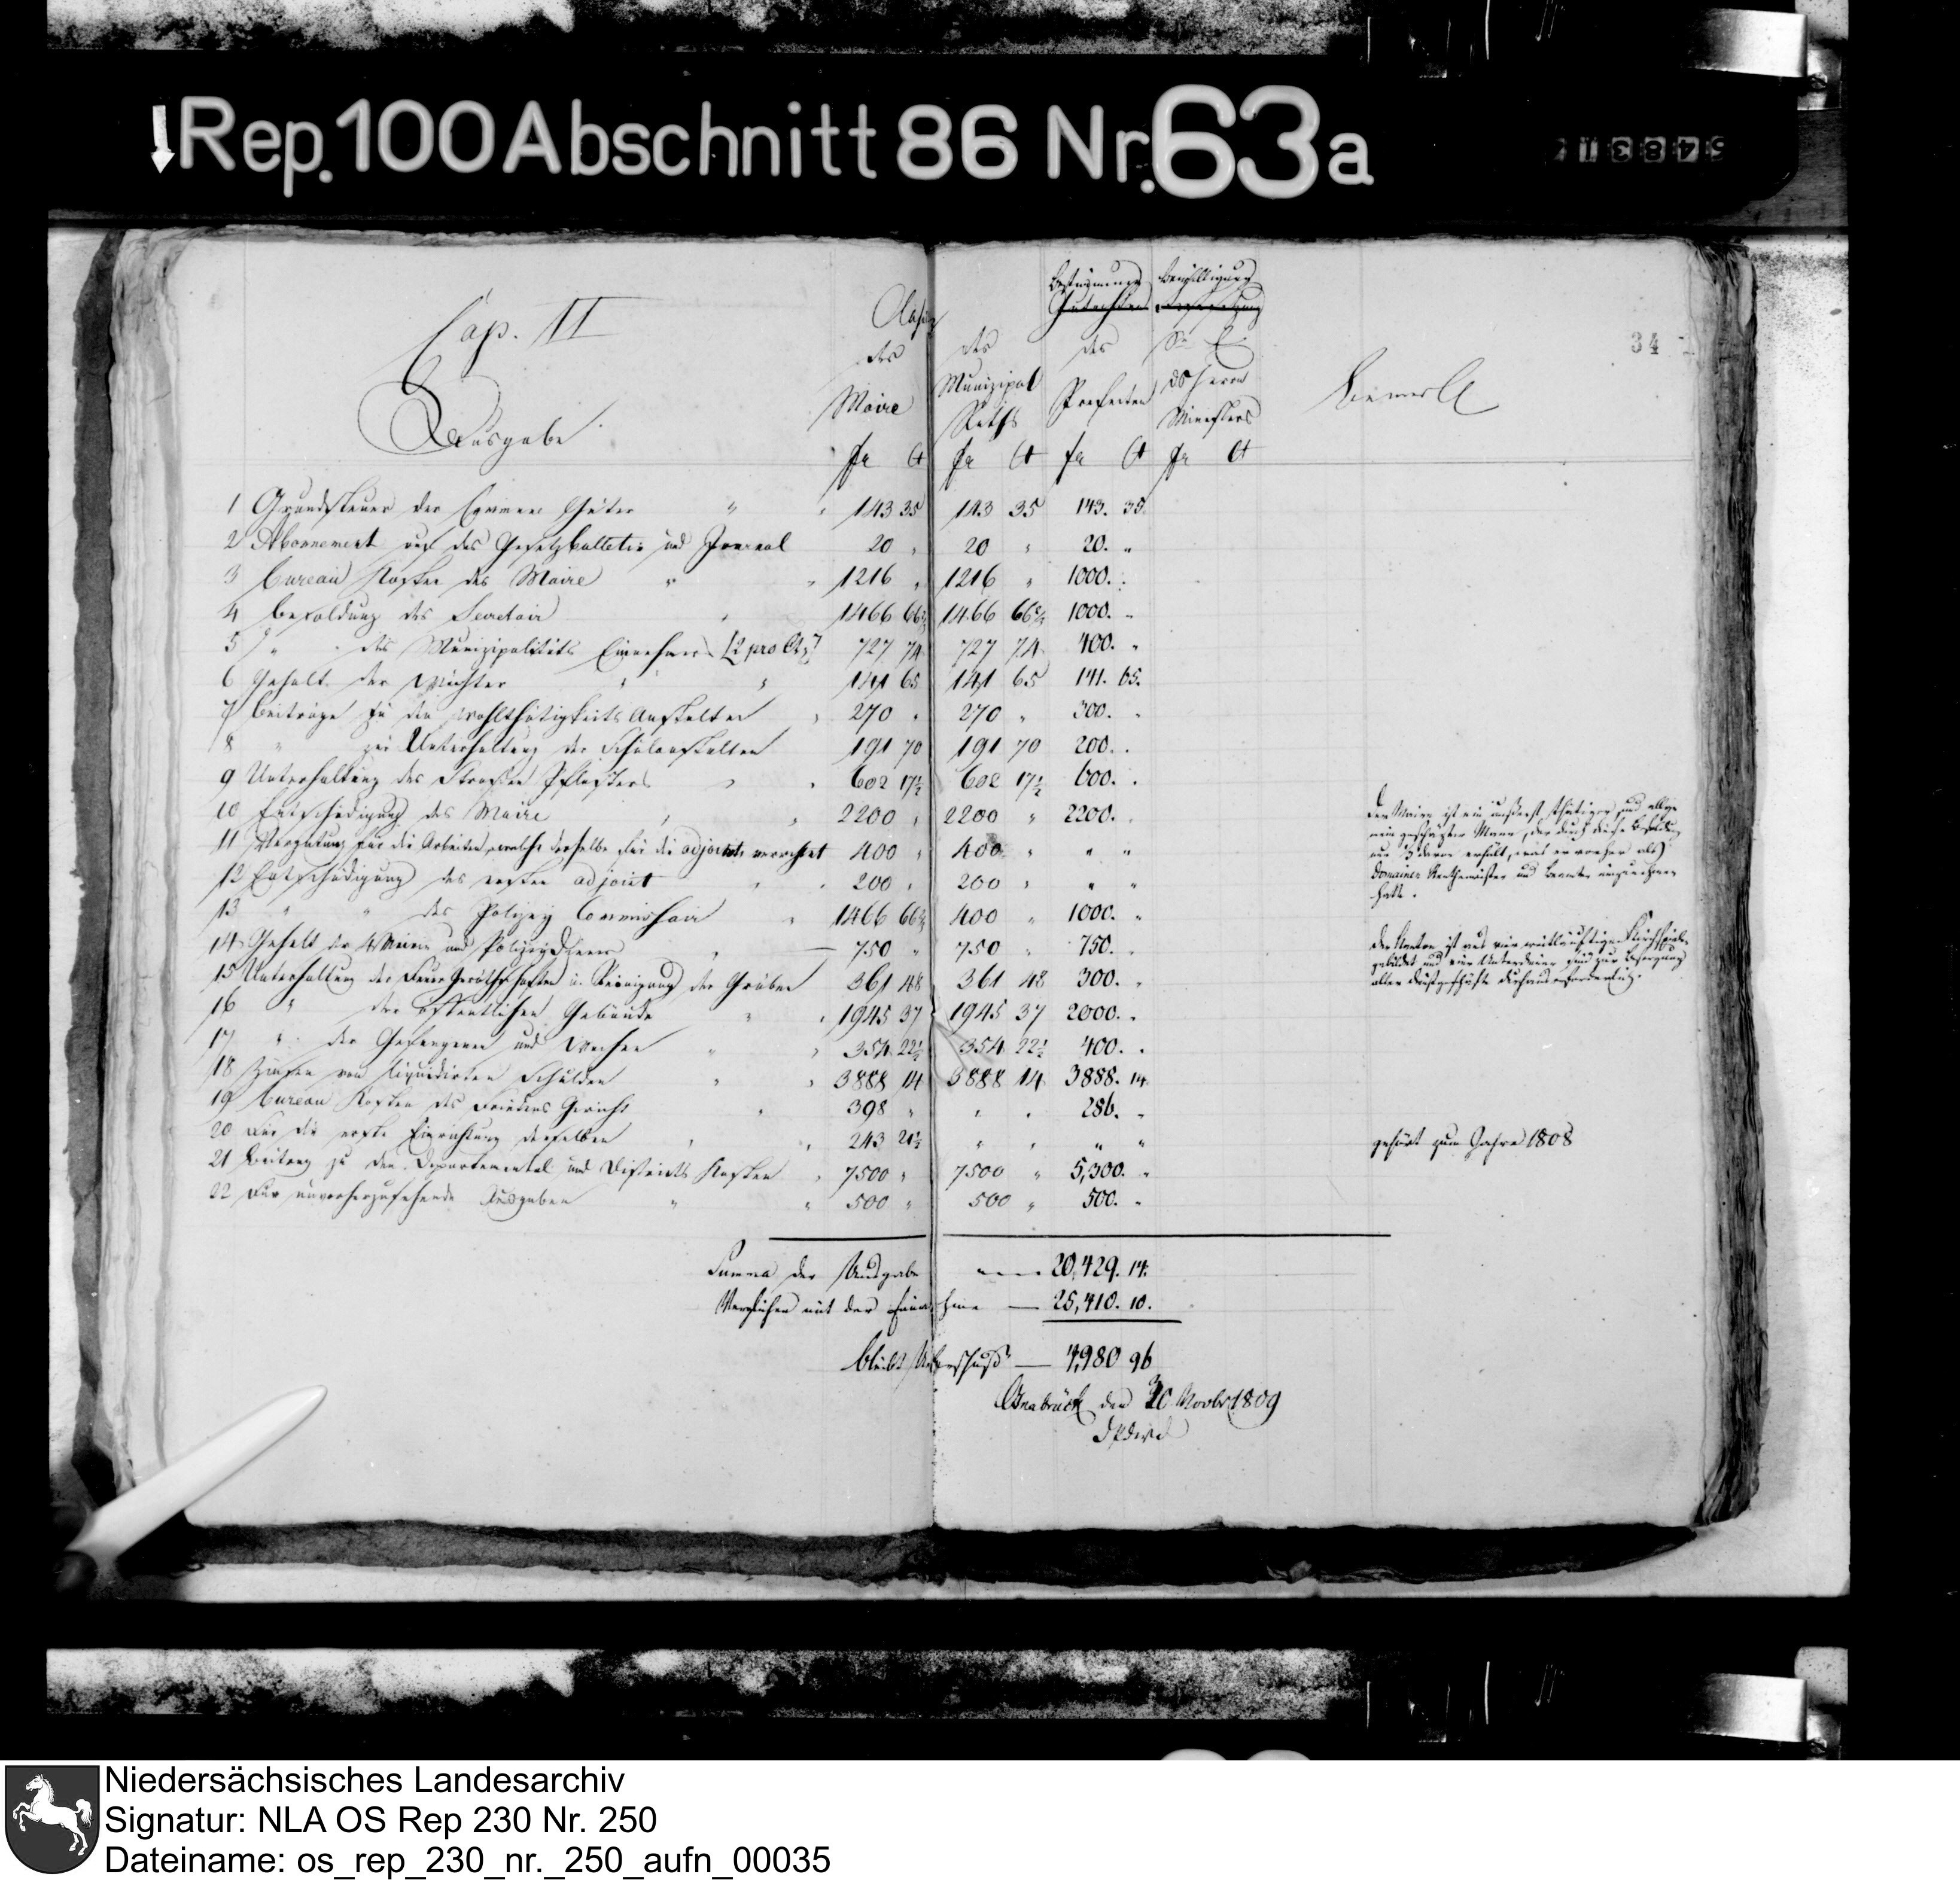 Rep. 100 Abschnitt 86 Nr. 63a
54831
34
Cap. II
Ausgabe
des Maire
des Munizipal Raths
Bestimmung des Praefecten
Bewilligung Sr. E. des Herrn Ministers
Bemerk
fr Ct fr Ct fr Ct fr Ct
1 Grundsteuer der Güter " " 143 35 143 35 143. 35.
2 Abonnement auf das Gesetzbulletin und Journal 20 " 20 " 20. "
3 Bureau Kosten des Maire " " 1216 " 1216 " 1000. "
4 Besoldung des Secretair " 1466 66⅔ 1466 66⅔ 1000. "
5 " des Munizipalitäts Einnehmers [2 pro Ct] 727 74 727 74 400. "
6 Gehalt der Wächter " " 141 65 141 65 141. 65.
7 Beiträge zu den Wohlthätigkeits Anstalten " 270 " 270 " 300. "
8 " zur Unterhaltung der Schulanstalten 191 70 191 70 200. "
9 Unterhaltung des Straßen Pflasters " " 602 17½ 602 17½ 600. "
10 Entschädigung des Maire " " 2200 " 2200 " 2200. "
11 Vergütung für die Arbeiten, welche derselbe für die adjoints verrichtet 400 " 400 " " "
12 Entschädigung des ersten adjoint " " 200 " 200 " " "
13 " " des Polizey Commissair " 1466 66⅔ 400 " 1000. "
14 Gehalt der 4 und Polizeydiener " — 750 " 750 " 750. "
15 Unterhaltung der Feuer Geräthschaften u. Reinigung der Gräben 361 48 361 48 300. "
16 " der öffentlichen Gebäude " " 1945 37 1945 37 2000. "
17 " der Gefangenen und Wachen " " 354 22½ 354 22½ 400. "
18 Zinsen von liquidirten Schulden " " 3888 14 3888 14 3888. 14.
19 Bureau Kosten des Friedens Gericht " 398 " " " 286. "
20 Für die erste Einrichtung desselben " " 243 21½ " " " "
21 Beitrag zu den Departemental und Districts Kosten " 7500 " 7500 " 5,300. "
22 Für unvorherzusehende Ausgaben " " 500 " 500 " 500. "
Der Maire ist ein äußerst thätiger, und allge-
mein geschäzter Mann, der durch diese Besoldung
nur ⅓ davon erhält, was er vorher als
Domainen Rentmeister und Beamter
hatte.
Der Kanton ist aus vier weitläuftigen Kirchspielen
gebildet und vier Unterdiener sind zur Besorgung
aller Dienstgeschäfte durchaus erforderlich.
gehört zum Jahre 1808
Summa der Ausgabe 20,429. 14.
Verglichen mit der Einnahme — 25,410. 10.
bleibt Ueberschuß — 4,980 96
Osnabrück den 30 Novbr 1809
Niedersächsisches Landesarchiv
Signatur: NLA OS Rep 230 Nr. 250
Dateiname: os_rep_230_nr._250_aufn_00035